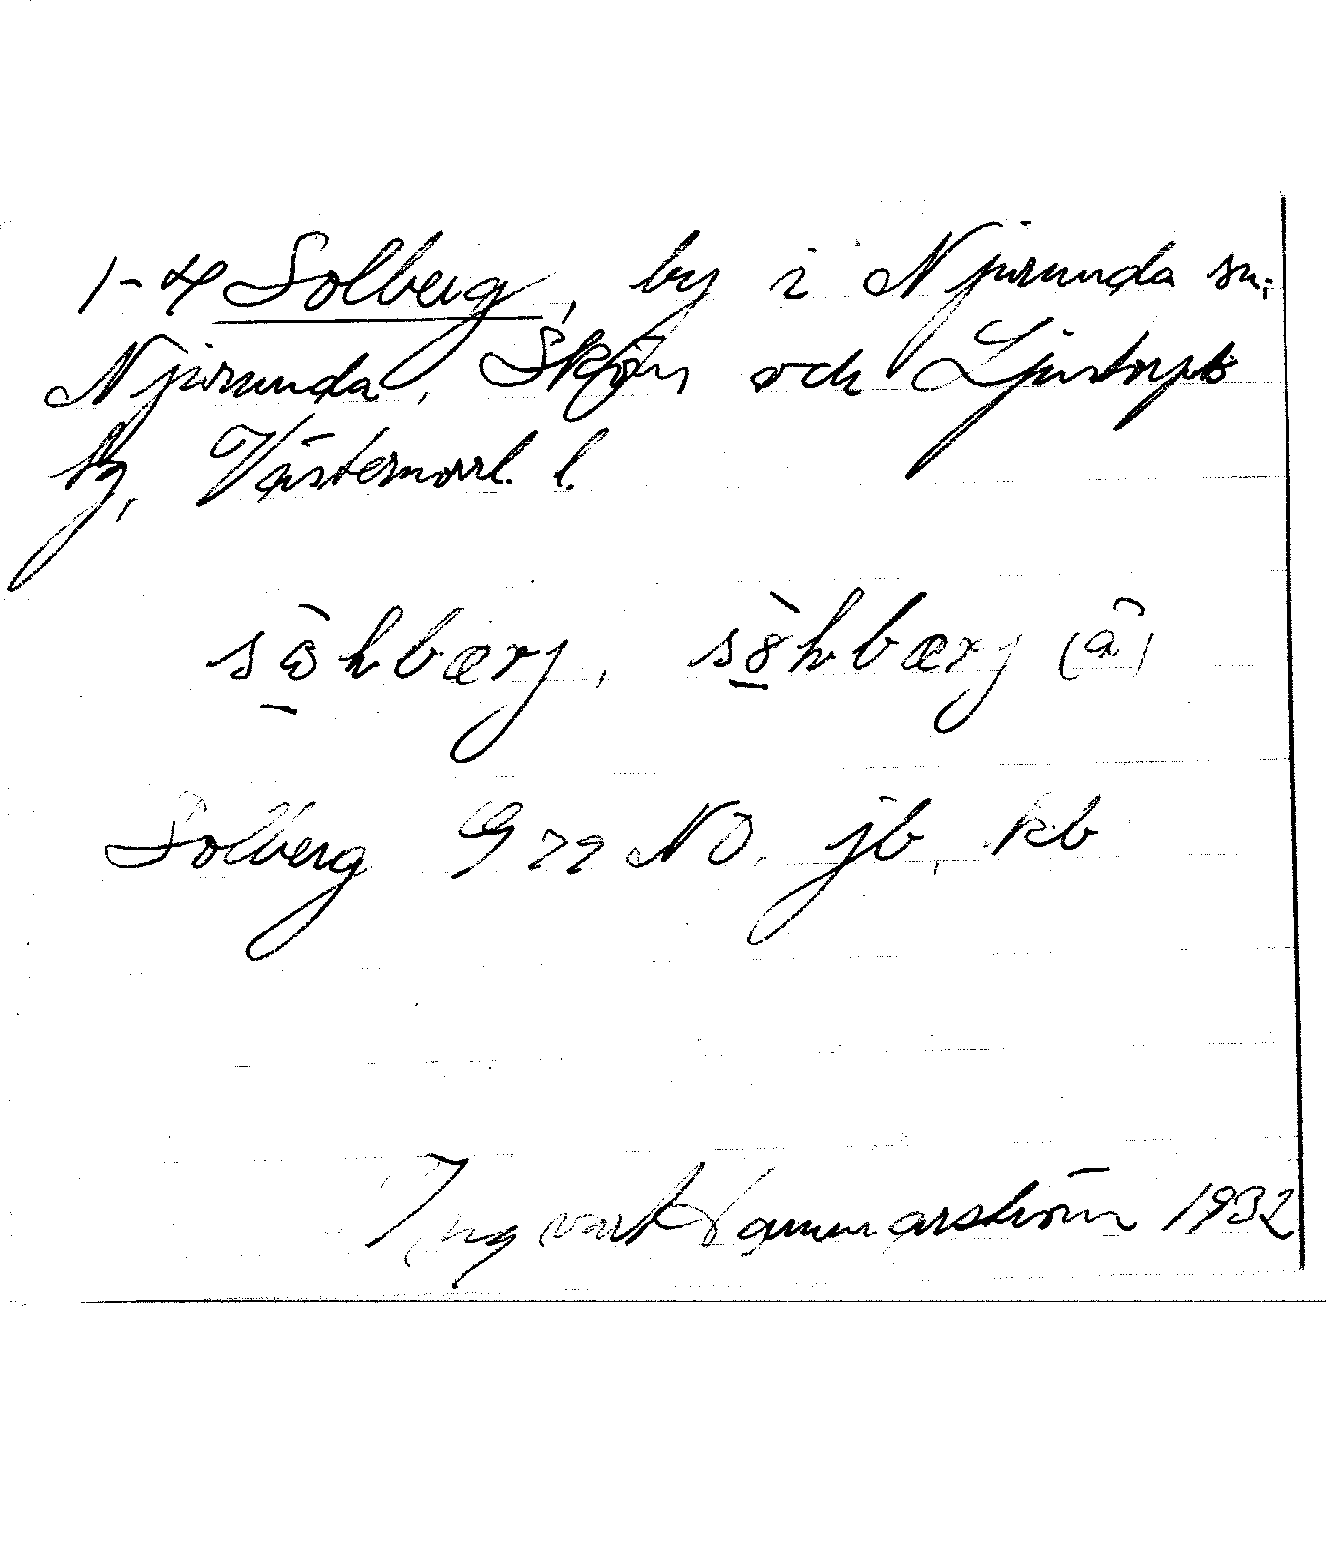 1-4 Solberg, by i Njurunda sn;
Njurunda, Sköns och Ljustorps
tg, Västernorrl. l.
Solberg G 79 NO. jb, kb
Ingvart Hammarström 1932